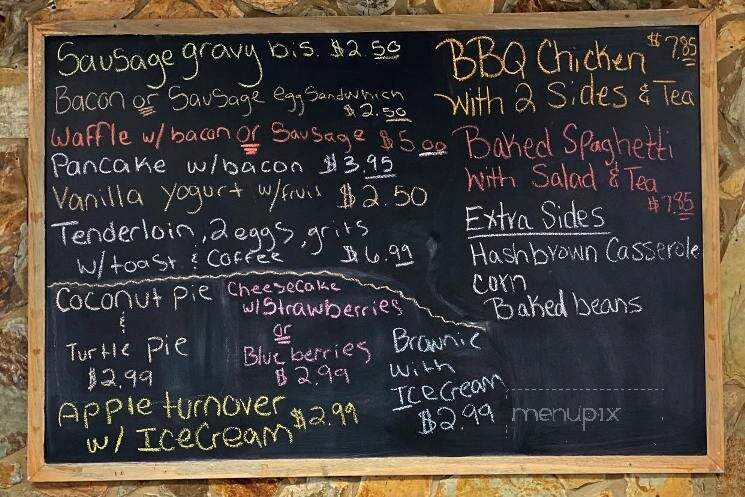 Sausage gravy bis. $2.50
Bacon or Sausage egg Sandwhich
$2.50
Waffle w/ bacon or Sausage $5.00
Pancake w/bacon $3.95
Vanilla yogurt w/fruit $2.50
Tenderloin, 2 eggs, grits
w/toast & Coffee $6.99
Coconut pie
&
Turtle pie
$2.99
Cheesecake
w/Strawberries
or
Blueberries
$2.99
Apple turnover
w/ IceCream $2.99
Brownie
with
IceCream
$2.99
BBQ Chicken $7.85
with 2 Sides & Tea
Baked Spaghetti
with Salad & Tea
$7.85
Extra Sides
Hashbrown Casserole
corn
Baked beans
menupix